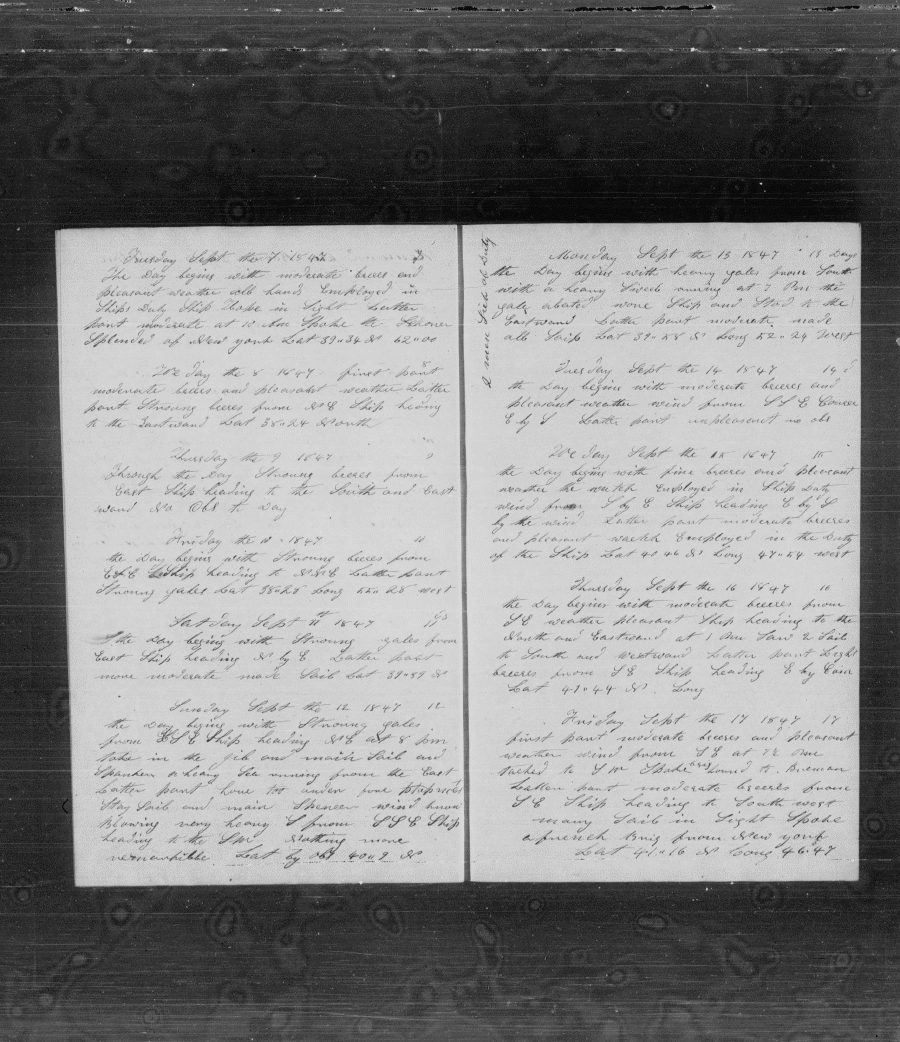 Tuesday Sept the 7 1847 7
The Day begins with moderate brees and
pleasant weather all hands Employed in
Ships Duty Ship Hope in Sight Latter
part moderate at 10 Am Spoke the
Splended of New york Lat 39"34 N 62"00
We day the 8 1847 first part 8
moderate brees and pleasant weather Latter
part Stroung brees from N E Ship heading
to the Eastward Lat 38"24 North
Thursday the 9 1847 9
Through the Day Stroung brees from
East Ship heading to the South and East
ward No Obs to Day
Friday the 10 1847
the Day begins with Stroung brees from
E S E Ship heading to N N E Latter part
Stroung gales Lat 38"28 Long 55"28 West
Satday Sept 11th 1847
the Day begins with Stroung gales from
East Ship heading N by E Latter part
more moderate made Sail Lat 39"59 N
Sunday Sept the 12 1847 12
the Day begins with Stroung gales
from E S E Ship heading N E at 8 pm
toke in the jib and main Sail and
Spanker a heavy Sea running from the East
Latter part hove too under fore
Stay Sail and main Spencer wind
Blowing very heavy from S S E Ship
heading to the S W Nothing more
remarkible Lat by obs 40"9 N
2 men Sick of Duty
Monday Sept the 13 1847 13 Days
the Day begins with heavy gales from South
with a heavy running at 7 Pm the
gale abated wore Ship and Stod to the
Eastward Latter part moderate made
all Sail Lat 39"58 N Long 52"24 West
Tuesday Sept the 14 1847 14
the Day begins with moderate breeres and
pleasant weather wind from S S E Course
E by S Latter part unpleasant no obs
We day Sept the 15 1847 15
the Day begins with fine breeres and pleasant
weather the watch Employed in Ship Duty
wind from S by E Ship heading E by S
by the wind Latter part moderate breeres
and pleasant watch Employed in the Duty
of the Ship Lat 41"46 N Long 47"54 west
Thursday Sept the 16 1847 16
the Day begins with moderate breeres from
S E weather pleasant Ship heading to the
North and Eastward at 1 Pm Saw 2 Sail
to South and westward Latter part Light
breeres from S E Ship heading E by
Lat 41"44 N Long
Friday Sept the 17 1847 17
first part moderate breeres and pleasant
weather wind from S E at Pm
tacked to S W Spoke Bound to Bremen
Latter part moderate breeres from
S E Ship heading to South west
many Sail in Sight Spoke
a french Brig from New york
Lat 41"16 N Long 46.47